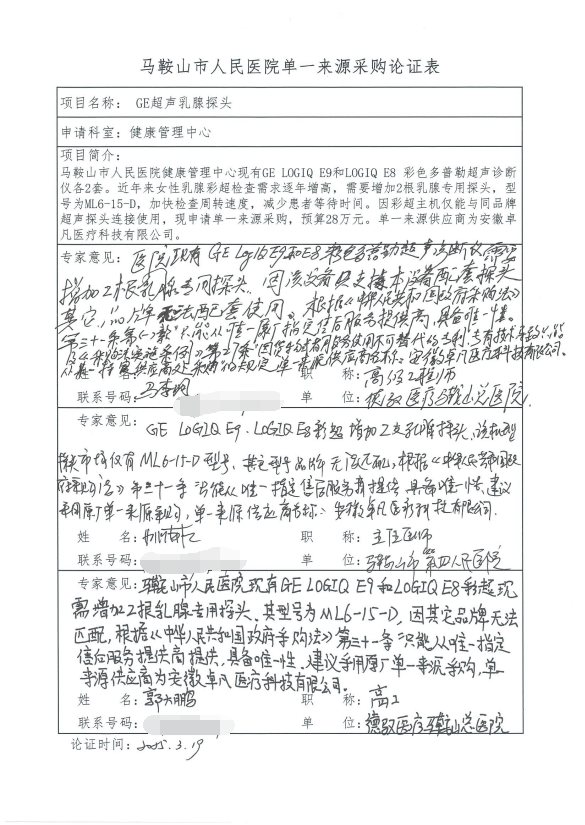 马鞍山市人民医院单一来源采购论证表
项目名称： GE超声乳腺探头
申请科室：健康管理中心
项目简介：
马鞍山市人民医院健康管理中心现有GE LOGIQ E9和LOGIQ E8 彩色多普勒超声诊断
仪各2套。近年来女性乳腺彩超检查需求逐年增高，需要增加2根乳腺专用探头，型
号为ML6-15-D，加快检查周转速度，减少患者等待时间。因彩超主机仅能与同品牌
超声探头连接使用，现申请单一来源采购，预算28万元。单一来源供应商为安徽卓
凡医疗科技有限公司。
专家意见：医院现有GE Logiq E9和E8彩色多普勒超声诊断仪需要
增加2根乳腺专用探头，因该设备只支持本设备配套探头
其它品牌无法配套使用。根据《中华人民共和国政府采购法》
第三十一条第一款"只能从唯一原厂指定售后服务提供商，具备唯一性。
单一来源供应商为：安徽卓凡医疗科技有限公司。
职 称：高级工程师
联系号码：
单 位：德驭医疗马鞍山总医院
专家意见：GE LOGIQ E9、LOGIQ E8彩超增加2支乳腺探头，该机型
探头市场仅有ML6-15-D型号，其它型号品牌无法匹配，根据《中华人民共和国政
府采购法》第三十一条"只能从唯一指定售后服务商提供，具备唯一性，建议
采用原厂单一来源采购，单一来源供应商为：安徽卓凡医疗科技有限公司。
姓 名：
职 称：主任医师
联系号码：
单 位：马鞍山市第四人民医院
专家意见：马鞍山市人民医院现有GE LOGIQ E9和LOGIQ E8彩超现
需增加2根乳腺专用探头、其型号为ML6-15-D，因其它品牌无法
匹配，根据《中华人民共和国政府采购法》第三十一条"只能从唯一指定
售后服务提供商提供，具备唯一性、建议采用原厂单一来源采购，单一
来源供应商为安徽卓凡医疗科技有限公司。
姓 名：郭大鹏
职 称：高工
联系号码：
单 位：德驭医疗马鞍山总医院
论证时间：2025.3.19